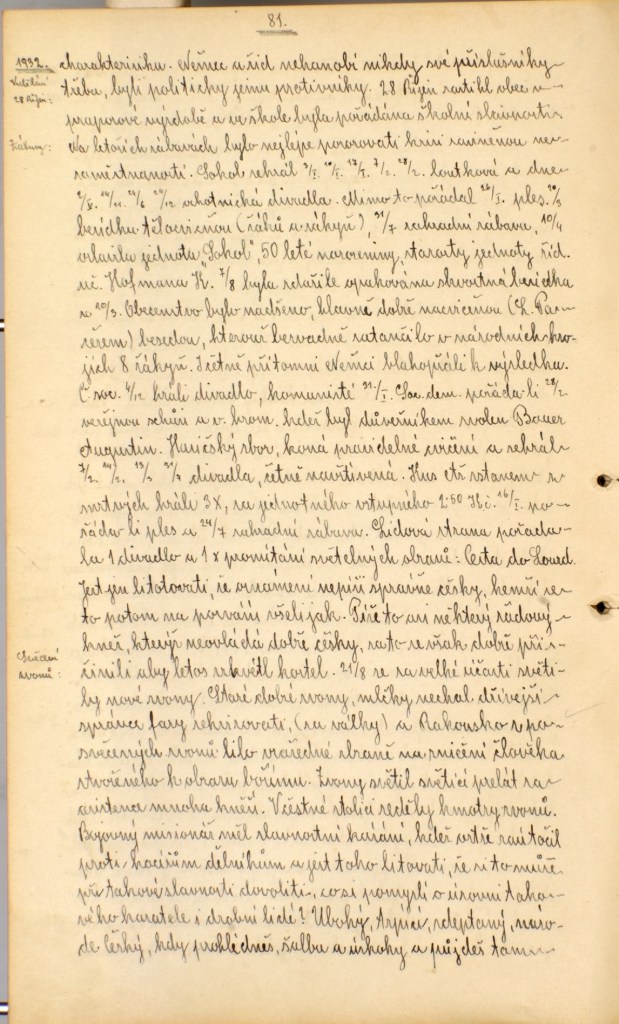 81.
1932. charakterniku. Němec a žid nehanobí nikdy své příslušníky
třeba, byli politicky jemu protivníky. 28 Říjen zastihl obec v
28 Říjen: praporové výzdobě a ve škole byla pořádána školní slavnost.
Zábavy: Na letošních zábavách bylo nejlépe pozorovati krisi zaviněnou ne-
zaměstnaností. Sokol sehrál loutková a dne
ochotnická divadla. Mimo to pořádal ples,
besídku tělocvičnou (žáků a žákyň), 31/7 zahradní zábavu, 10/4
oslavila jednota „Sokol“, 50 leté narozeniny, starosty jednoty říd.
uč. Hofmana K. 7/8 byla zdařile opakována skvostná besídka
z 20/3. Obecenstvo bylo nadšeno, hlavně dobře nacvičenou
besedou, kterouž bezvadně zatančilo v národních kro-
jích 8 žákyň. I četně přítomní Němci blahopřáli k výsledku.
Č. soc. 4/12 hráli divadlo, komunisté 31/I. Soc. dem. pořádali 28/2
veřejnou schůzi a v hrom. kdež byl důvěrníkem zvolen Bauer
Augustin. Hasičský sbor, koná pravidelné cvičení a sehrál
divadla, četně navštívená. Kus
mrtvých hráli 3x, za jednotného vstupného 2·50 Kč. 16/I. po-
řádali ples a 24/7 zahradní zábavu. Lidová strana pořáda-
la 1 divadlo a 1x promítání světelných obrazů: Cesta do Lourd.
Jest jen litovati, že oznámení nepíší správně česky, kemší se
to potom na pozvání všelijak. Píše to asi některý řádový
kněz, který neovládá dobře česky, zato se však dobře při-
Svěcení činili aby letos zkvětl kostel. 21/8 se za velké účasti světi-
zvonů: ly nové zvony. Staré dobré zvony, mlčky nechal dřívější
správce fary rekvirovati, (za války) a Rakousko z po-
svěcených zvonů lilo vražedné zbraně na zničení člověka
stvořeného k obrazu božímu. Zvony světil světící prelát za
asistence mnoha kněží. V čestné stolici seděly kmotry zvonů.
Bojovný misionář měl slavnostní kázání, kdež ostře zaútočil
proti dělníkům a jest toho litovati, že si to může
při takové slavnosti dovoliti, co si pomyslí o úrovni tako-
vého karatele i drobní lidé? Ubohý, trpící, zdeptaný, náro-
de Český, kdy prohlédneš, šalbu a úskoky a půjdeš tam